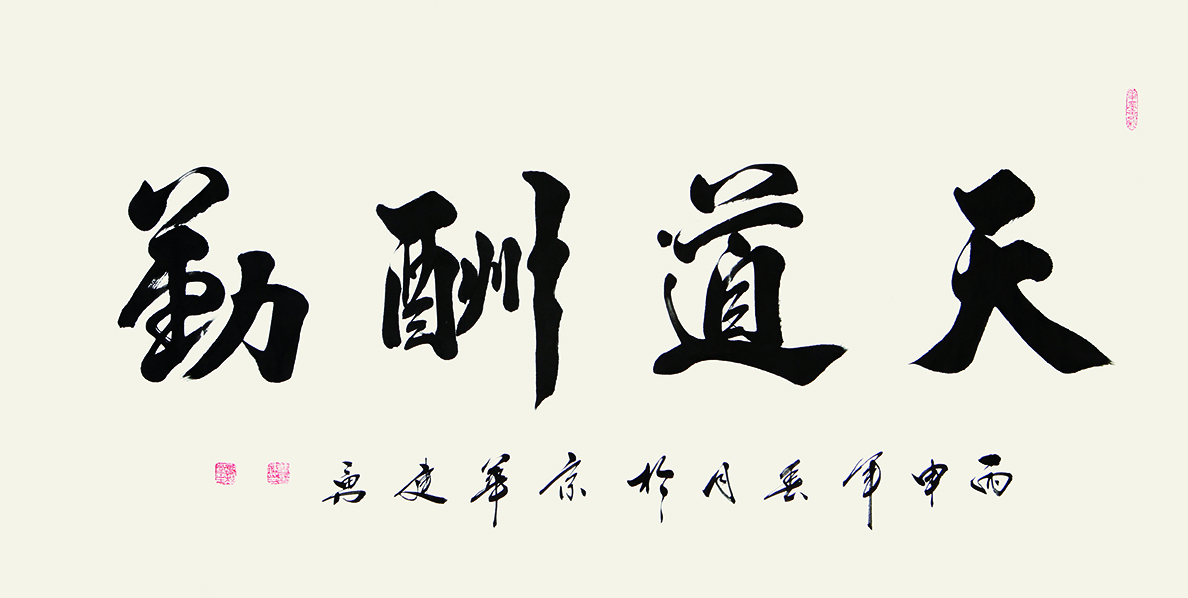 天道酬勤
丙申年春月於京華建勇